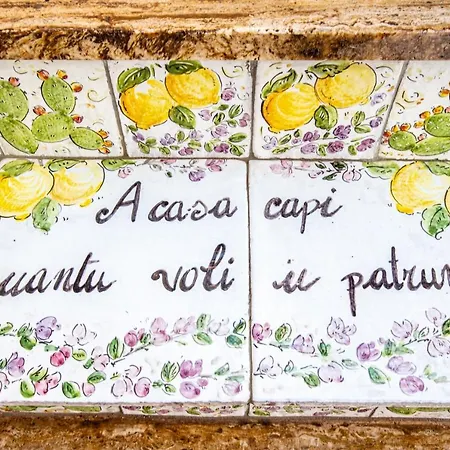 A casa capi
uantu voli u patrun